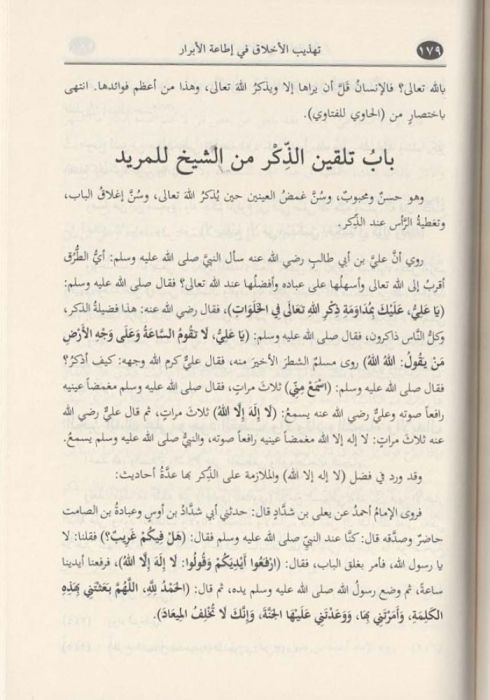 ١٧٩
تهذيب الأخلاق في إطاعة الأبرار
بالله تعالى؟ فالإنسانُ قَلَّ أن يراها إلا ويذكرُ اللهَ تعالى، وهذا من أعظم فوائدها. انتهى
باختصارٍ من (الحاوي للفتاوي).
بابُ تلقين الذِّكْر من الشيخ للمريد
وهو حسنٌ ومحبوبٌ، وسُنَّ غمضُ العينين حين يُذكرُ اللهَ تعالى، وسُنَّ إغلاقُ الباب،
وتغطيةُ الرَّأس عند الذِّكر.
روي أنَّ عليَّ بن أبي طالبٍ رضي الله عنه سأل النبيَّ صلى الله عليه وسلم: أيُّ الطُّرُق
أقربُ إلى الله تعالى وأسهلُها على عباده وأفضلُها عند الله تعالى؟ فقال صلى الله عليه وسلم:
(يَا عَلِيُّ، عَلَيْكَ بِمُدَاوَمَةِ ذِكْرِ اللهِ تَعَالَى فِي الخَلَوَاتِ)، فقال رضي الله عنه: هذا فضيلةُ الذكر،
وكلُّ النَّاس ذاكرون، فقال صلى الله عليه وسلم: (يَا عَلِيُّ، لَا تَقُومُ السَّاعَةُ وَعَلَى وَجْهِ الأَرْضِ
مَنْ يَقُولُ: اللهُ اللهُ) روى مسلمٌ الشطرَ الأخيرَ منه، فقال عليٌّ كرم الله وجهه: كيف أذكرُ؟
فقال صلى الله عليه وسلم: (اسْمَعْ مِنِّي) ثلاثَ مراتٍ، فقال صلى الله عليه وسلم مغمضاً عينيه
رافعاً صوته وعليٌّ رضي الله عنه يسمعُ: (لَا إِلَهَ إِلَّا اللهُ) ثلاثَ مراتٍ، ثم قال عليٌّ رضي الله
عنه ثلاثَ مراتٍ: لا إله إلا الله مغمضاً عينيه رافعاً صوته، والنبيُّ صلى الله عليه وسلم يسمعُ.
وقد ورد في فضل (لا إله إلا الله) والملازمة على الذِّكر بها عدَّةُ أحاديث:
فروى الإمامُ أحمدُ عن يعلى بن شدَّادٍ قال: حدثني أبي شدَّادُ بن أوسٍ وعبادةُ بن الصامت
حاضرٌ وصدَّقه قال: كنَّا عند النبيِّ صلى الله عليه وسلم فقال: (هَلْ فِيكُمْ غَرِيبٌ؟) فقلنا: لا
يا رسول الله، فأمر بغلق الباب، فقال: (ارْفَعُوا أَيْدِيَكُمْ وَقُولُوا: لَا إِلَهَ إِلَّا اللهُ)، فرفعنا أيدينا
ساعةً، ثم وضع رسولُ الله صلى الله عليه وسلم يده، ثم قال: (الحَمْدُ لِلَّهِ، اللَّهُمَّ بَعَثْتَنِي بِهَذِهِ
الكَلِمَةِ، وَأَمَرْتَنِي بِهَا، وَوَعَدْتَنِي عَلَيْهَا الجَنَّةَ، وَإِنَّكَ لَا تُخْلِفُ المِيعَادَ).